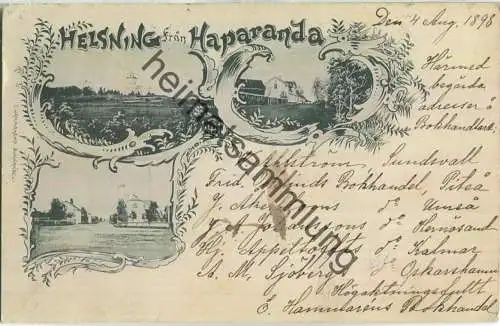 HELSNING från Haparanda
Den 4 Aug. 1896
Härmed
begäras
adresser å
Bokhandlare
Sundsvall
Frid. Bokhandel, Piteå
J. Åke d:o Umeå
J. A. d:o Hernösand
Hj. Appeltofts d:o Kalmar
A. M. Sjöberg d:o Oskarshamn
Högaktningsfullt
E. Bokhandel
heimatsammlung